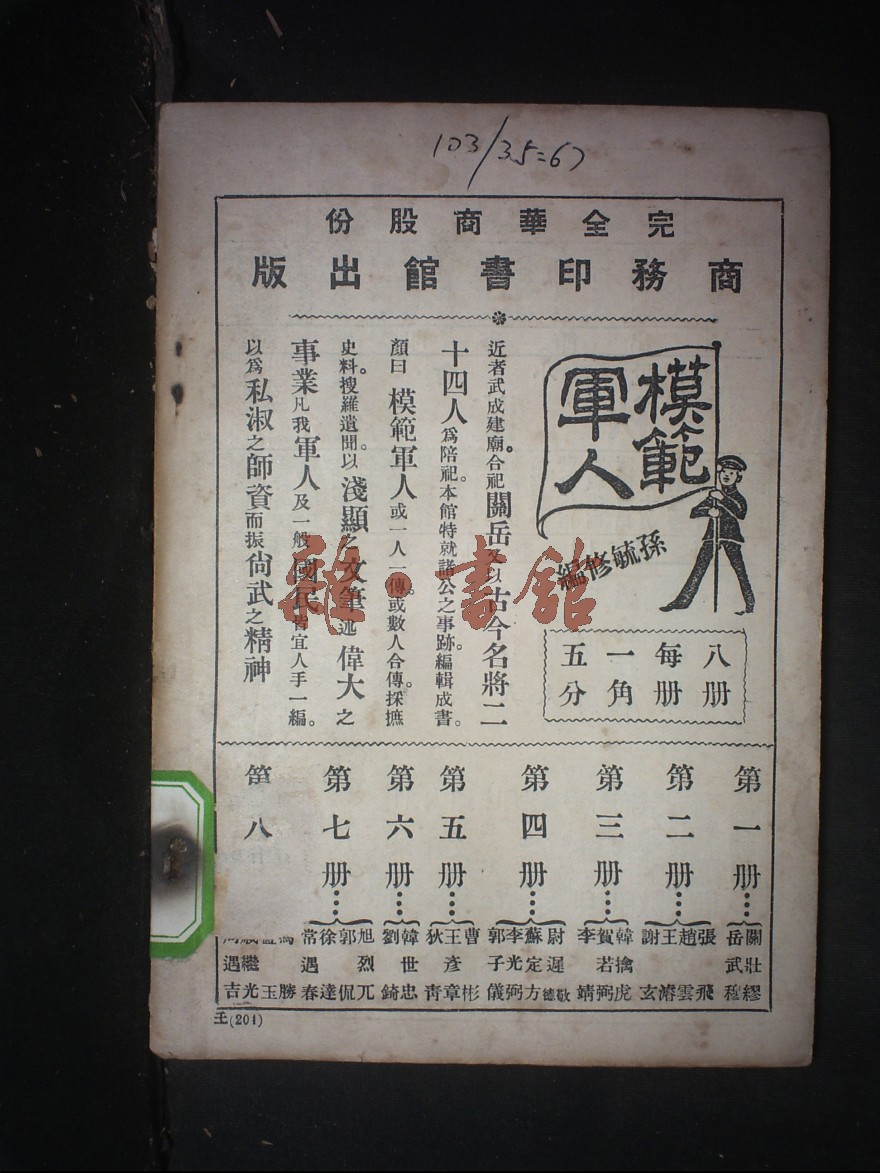 103/35=67
完全華商股份
商務印書館出版
模範
軍人
孫毓修編
八册
每册
一角
五分
近者武成建廟。合祀關岳又以古今名將二
十四人爲陪祀。本館特就諸公之事跡。編輯成書。
顏曰模範軍人或一人一傳。或數人合傳。採摭
史料。搜羅遺聞。以淺顯之文筆述偉大之
事業凡我軍人及一般國民皆宜人手一編。
以爲私淑之師資而振尙武之精神
第一册…
關壯繆
岳武穆
第二册…
張飛
趙雲
王濬
謝玄
第三册…
韓擒虎
賀若弼
李靖
第四册…
尉遲敬德
蘇定方
李光弼
郭子儀
第五册…
曹彬
王彥章
狄青
第六册…
韓世忠
劉錡
第七册…
旭烈兀
郭侃
徐達
常遇春
第八
馮勝
玉
戚繼光
周遇吉
王(201)
雜·書館